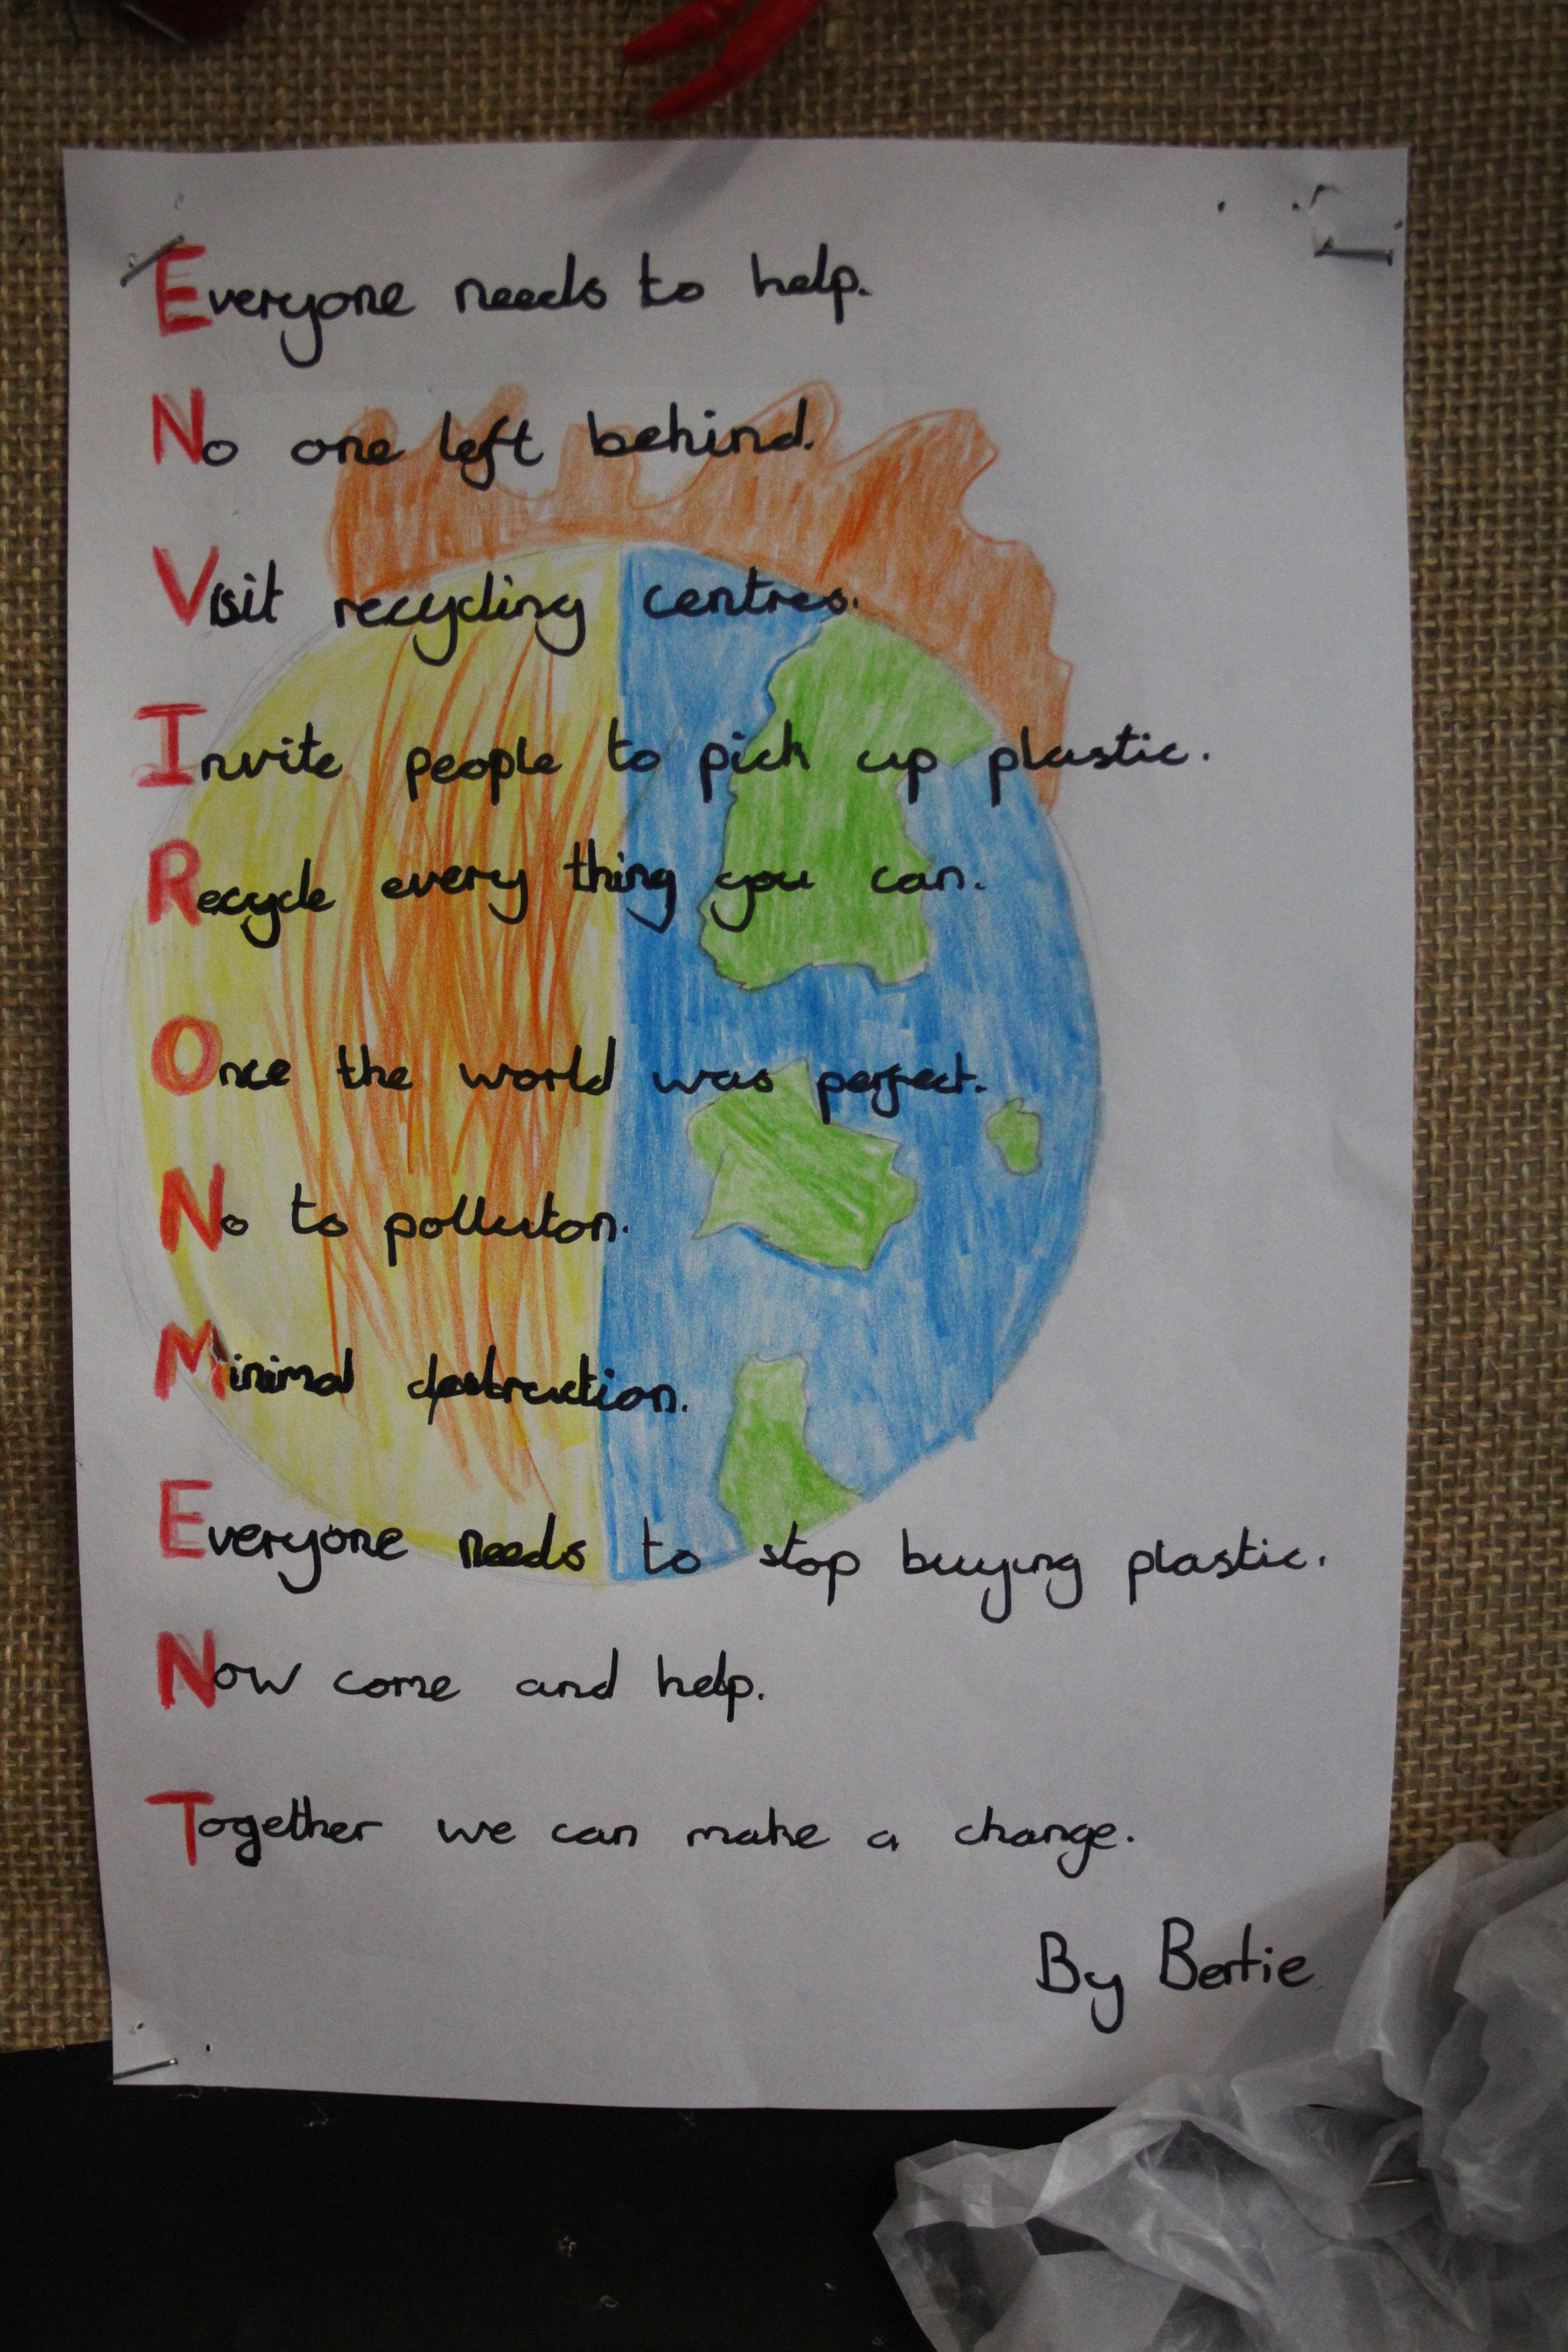 Everyone needs to help.
No one left behind.
Visit recycling centres.
Invite people to pick up plastic.
Recycle every thing you can.
Once the world was perfect.
No to polluton.
Minimal destruction.
Everyone needs to stop buying plastic.
Now come and help.
Together we can make a change.
By Bertie